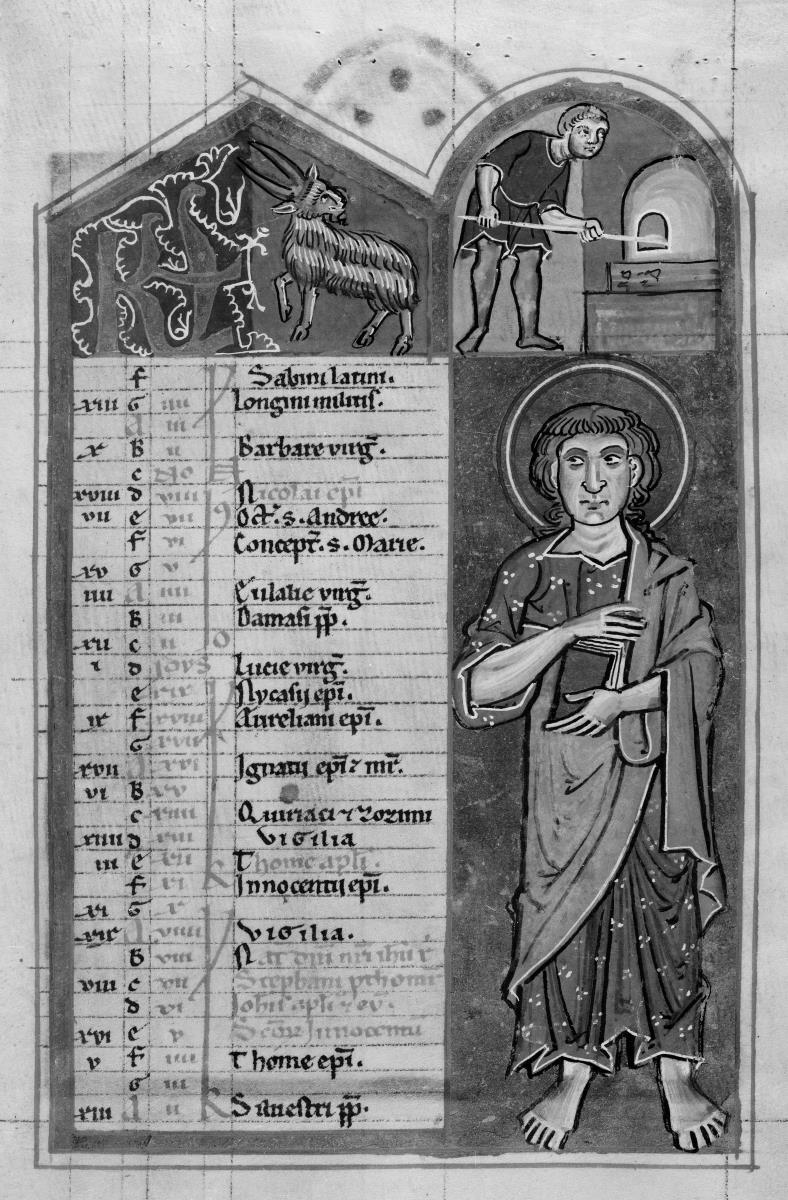 KL
f Sabini latini.
xiii G iiii Longini militis.
A iii
x B ii Barbare virg.
c No
xviii d viii Nicolai epi
vii e vii Oct. s. Andree.
f vi Concept. s. Marie.
xv G v
iiii A iiii Eulalie virg.
B iii Damasi pp.
xii c ii
i d Idus Lucie virg.
e xix Nycasii epi.
ix f xviii Aureliani epi.
G xvii
xvii A xvi Ignatii epi & mr.
vi B xv
c xiiii Quiriaci & Zozimi
xiiii d xiii Vigilia
iii e xii Thome apli.
f xi Innocentii epi.
xi G x
xix A viiii Vigilia.
B viii Nat dni nri ihu x
viii c vii Stephani
d vi Johis apli & ev.
xvi e v Scor Innocentu
v f iiii Thome epi.
G iii
xiii A ii Silvestri pp.